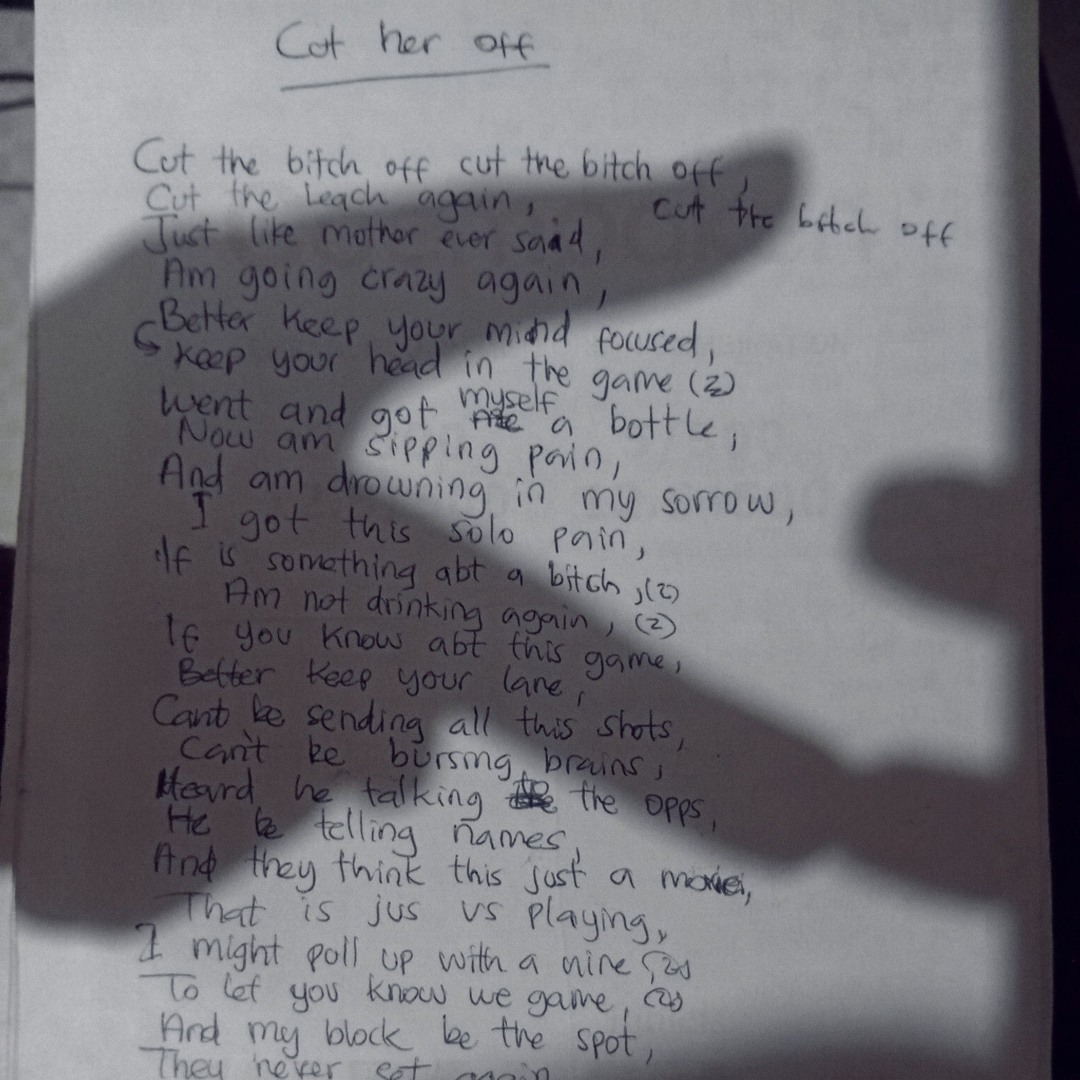 Cut her off
Cut the bitch off cut the bitch off,
Cut the Leach again, cut the bitch off
Just like mother ever said,
Am going crazy again,
Better keep your mind focused,
keep your head in the game (2)
Went and got myself a bottle,
Now am sipping pain,
And am drowning in my sorrow,
I got this solo pain,
If is something abt a bitch, (2)
Am not drinking again, (2)
If you know abt this game,
Better keep your lane,
Cant be sending all this shots,
Can't be bursing brains,
Heard he talking to the opps,
He be telling names,
And they think this just a movie,
That is jus us playing,
I might poll up with a nine, (2)
To let you know we game, (2)
And my block be the spot,
They never set again